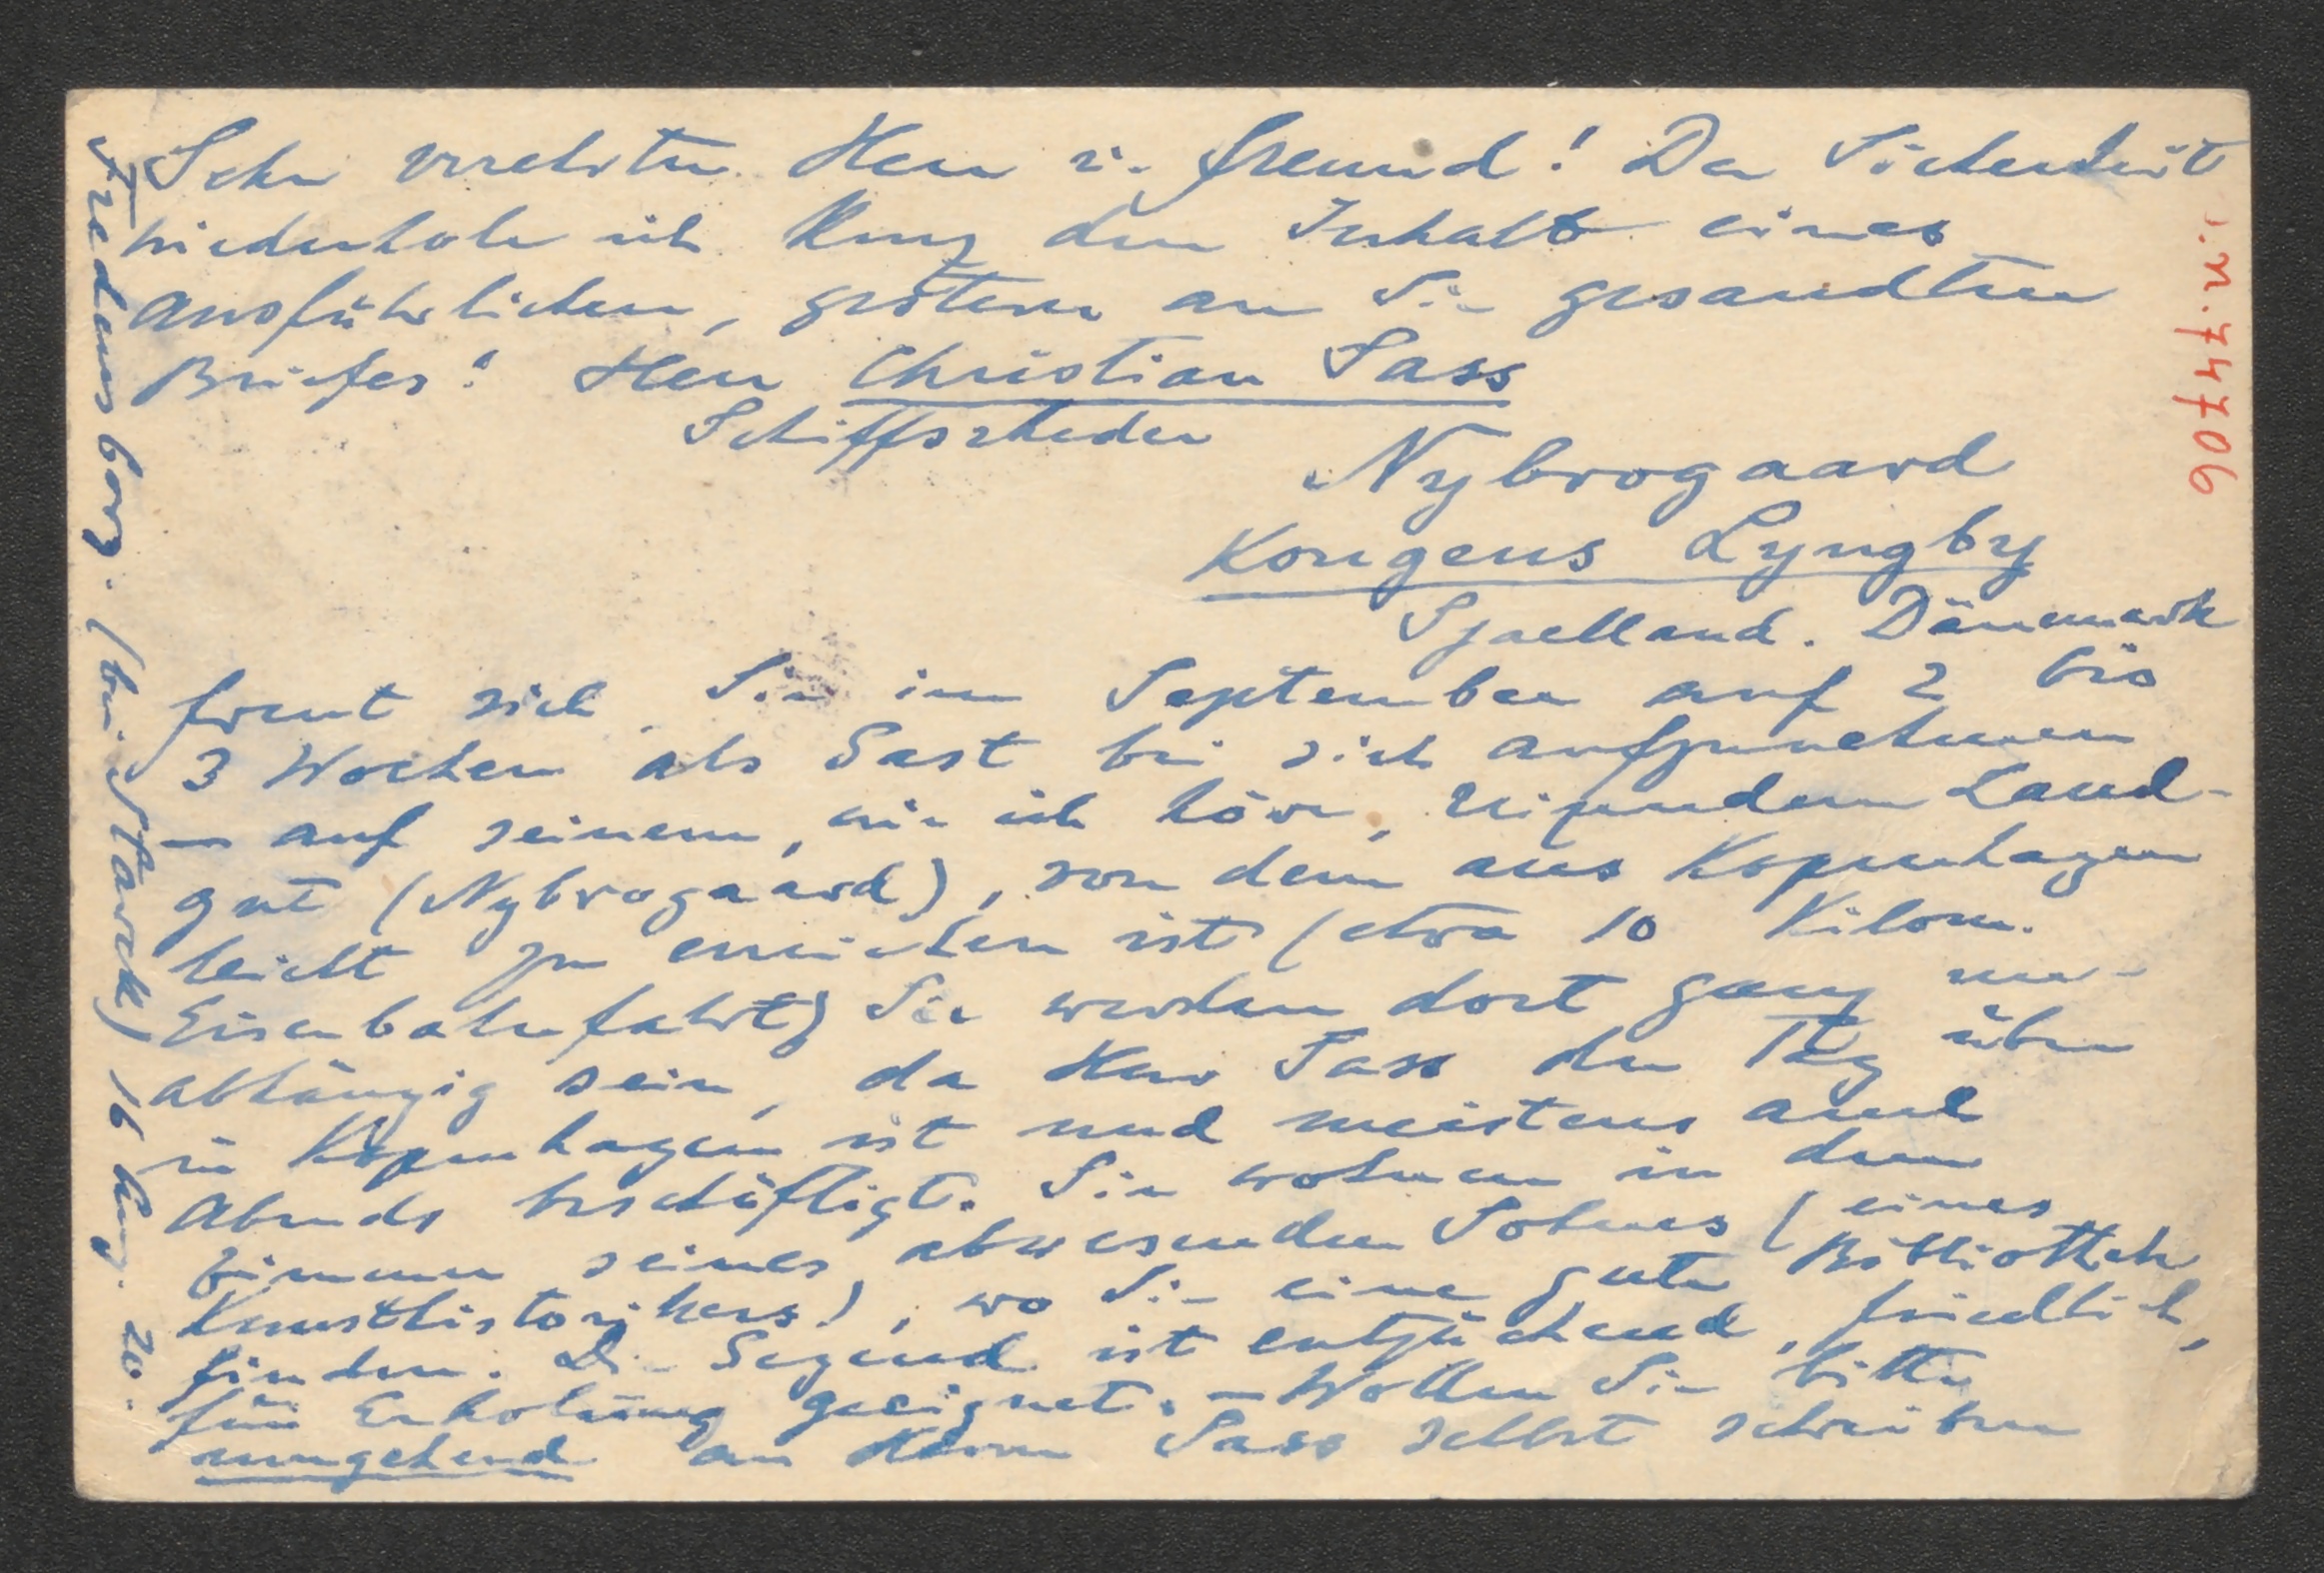 Sehr verehrter Herr u. Freund! Der Sicherheit
wiederhole ich kurz den Inhalt eines
ausführlichen, gestern an Sie gesandten
Briefes: Herr Christian Sass
Schiffsrheder
Nybrogaard
Kongens Lyngby
Sjaelland. Dänemark
freut sich Sie im September auf 2 bis
3 Wochen als Gast bei sich aufzunehmen
– auf seinem, wie ich höre, reizenden Land-
gut (Nybrogaard), von dem aus Kopenhagen
leicht zu erreichen ist (etwa 10 Kilom.
Eisenbahnfahrt) Sie werden dort ganz un-
abhängig sein, da Herr Sass den Tag über
in Kopenhagen ist und meistens auch
Abends beschäftigt. Sie wohnen in dem
Zimmer seines abwesenden Sohnes (eines
Kunsthistorikers), wo Sie eine gute Bibliothek
finden. Die Gegend ist entzückend, friedlich,
für Erholung geeignet. – Wollen Sie bitte
umgehend an Herrn Sass selbst schreiben
Fredensborg. (bei Starck) 16 Aug. 20.
I.N. 74706